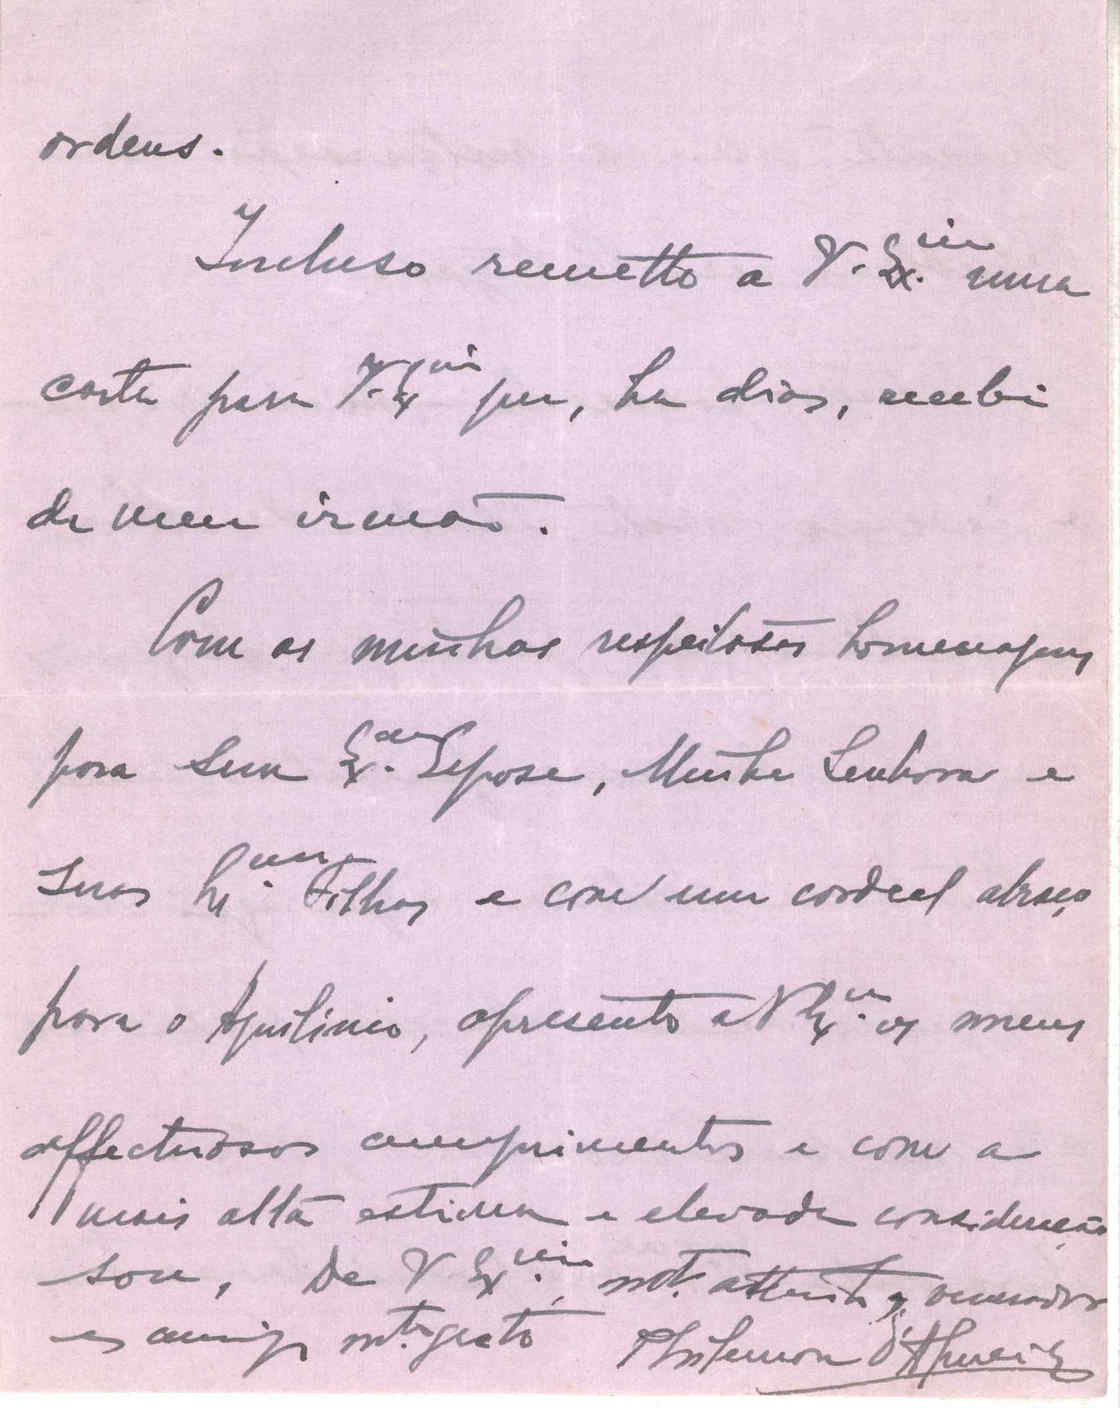 ordens.
Incluso remetto a V. Ex.cia uma
carta para V. Excia que, ha dias, recebi
de meu irmão.
Com as minhas respeitosas homenagens
para Sua Ex.ma Esposa, Minha Senhora e
suas Ex.mas Filhas e com um cordeal abraço
para o Aquilino, apresento a V Ex.cia os meus
affectuosos cumprimentos e com a
mais alta estima e elevada consideração
sou, De V Ex.cia, mt. attento venerador
e amigo mto grato Philemon d'Almeida